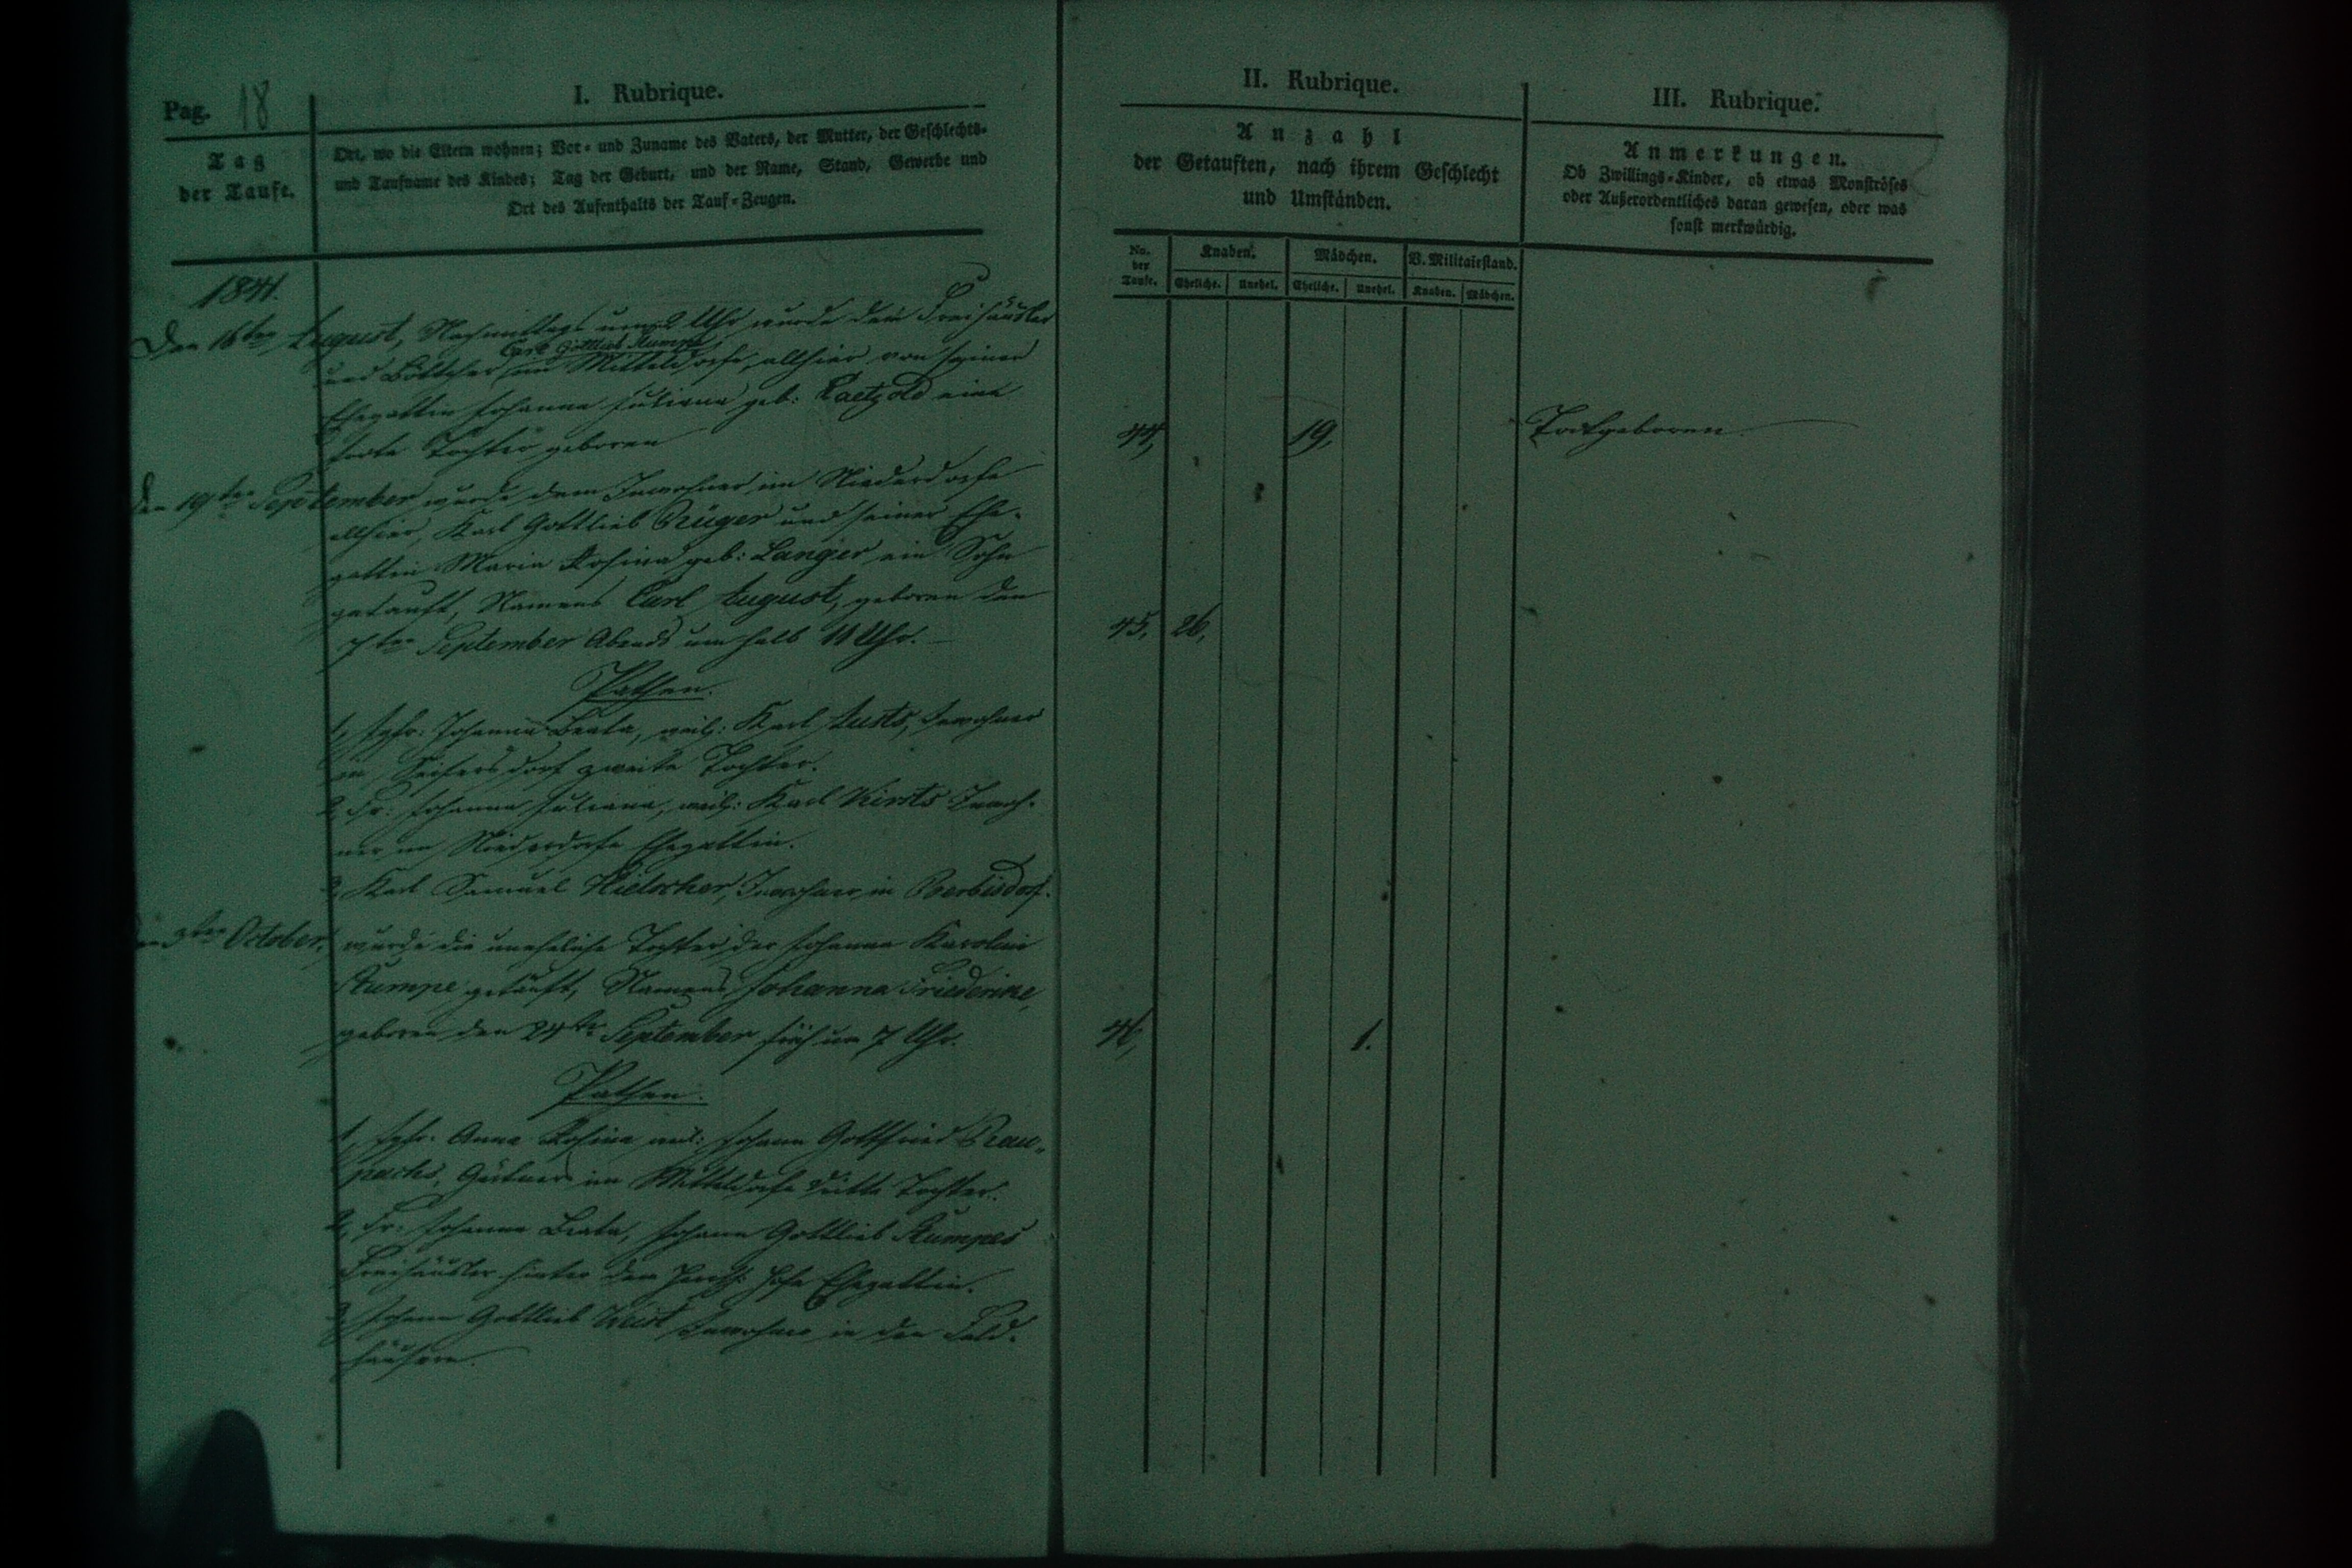 Pag. 18
I. Rubrique.
Tag
der Taufe.
Ort, wo die Eltern wohnen; Vor- und Zuname des Vaters, der Mutter, der Geschlechts-
und Taufname des Kindes; Tag der Geburt, und der Name, Stand, Gewerbe und
Ort des Aufenthalts der Tauf-Zeugen.
1841.
Den 16ten August, Nachmittags um 2 Uhr wurde dem Freihäusler
Carl Gottlieb Rumpe
und Böttcher im Mitteldorfe, allhier von seiner
Ehegattin Johanna Juliana geb: Paetzold eine
todte Tochter geboren
Den 19ten September wurde dem Inwohner im Niederdorfe
allhier, Karl Gottlieb Rüger und seiner Ehe-
gattin Maria Rosina geb: Langer, ein Sohn
getauft, Namens Carl August, geboren den
7ten September Abends um halb 11 Uhr.
Pathen.
1, Jgfr: Johanna Beata, weil: Karl Austs, Inwohner
in Seifersdorf zweite Tochter.
2, Fr: Johanna Juliana, weil: Karl Kirsts Inwoh-
ner im Niederdorfe Ehegattin.
3, Karl Samuel Hielscher, Inwohner in Berbisdorf.
Den 3ten October, wurde die uneheliche Tochter der Johanna Karoline
Rumpe getauft, Namens Johanna Friederike,
geboren den 24ten September früh um 7 Uhr.
Pathen.
1, Jgfr: Anna Rosina weil: Johann Gottfried Rau-
pachs, Gärtner im Mitteldorfe dritte Tochter.
2, Fr: Johanna Beata, Johann Gottlieb Rumpes
Freihäusler hinter dem Hofe Ehegattin.
3, Johann Gottlieb Weist Inwohner in den Feld-
häusern.
II. Rubrique.
Anzahl
der Getauften, nach ihrem Geschlecht
und Umständen.
No. der Taufe. Knaben. Mädchen. V. Militairstand.
Eheliche. Unehel. Eheliche. Unehel. Knaben. Mädchen.
44, 19,
45, 26,
46, 1.
III. Rubrique.
Anmerkungen.
Ob Zwillings-Kinder, ob etwas Monströses
oder Außerordentliches daran gewesen, oder was
sonst merkwürdig.
Todtgeboren